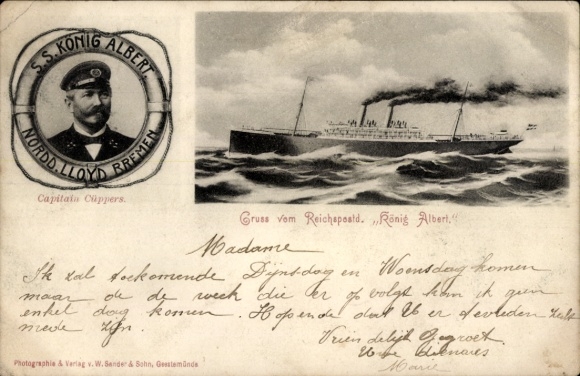 S.S. KÖNIG ALBERT.
NORDD. LLOYD BREMEN
Capitain Cüppers.
Gruss vom Reichspostd. „König Albert."
Madame
Ik zal toekomende Dijnsdag en Woensdag komen
maar de de week die er op volgt kan ik geen
enkel dag komen. Hopende dat U er tevreden zult
mede zijn.
Vriendelijk Gegroet
Uwe
Marie
Photographie & Verlag v. W. Sander & Sohn, Geestemünde